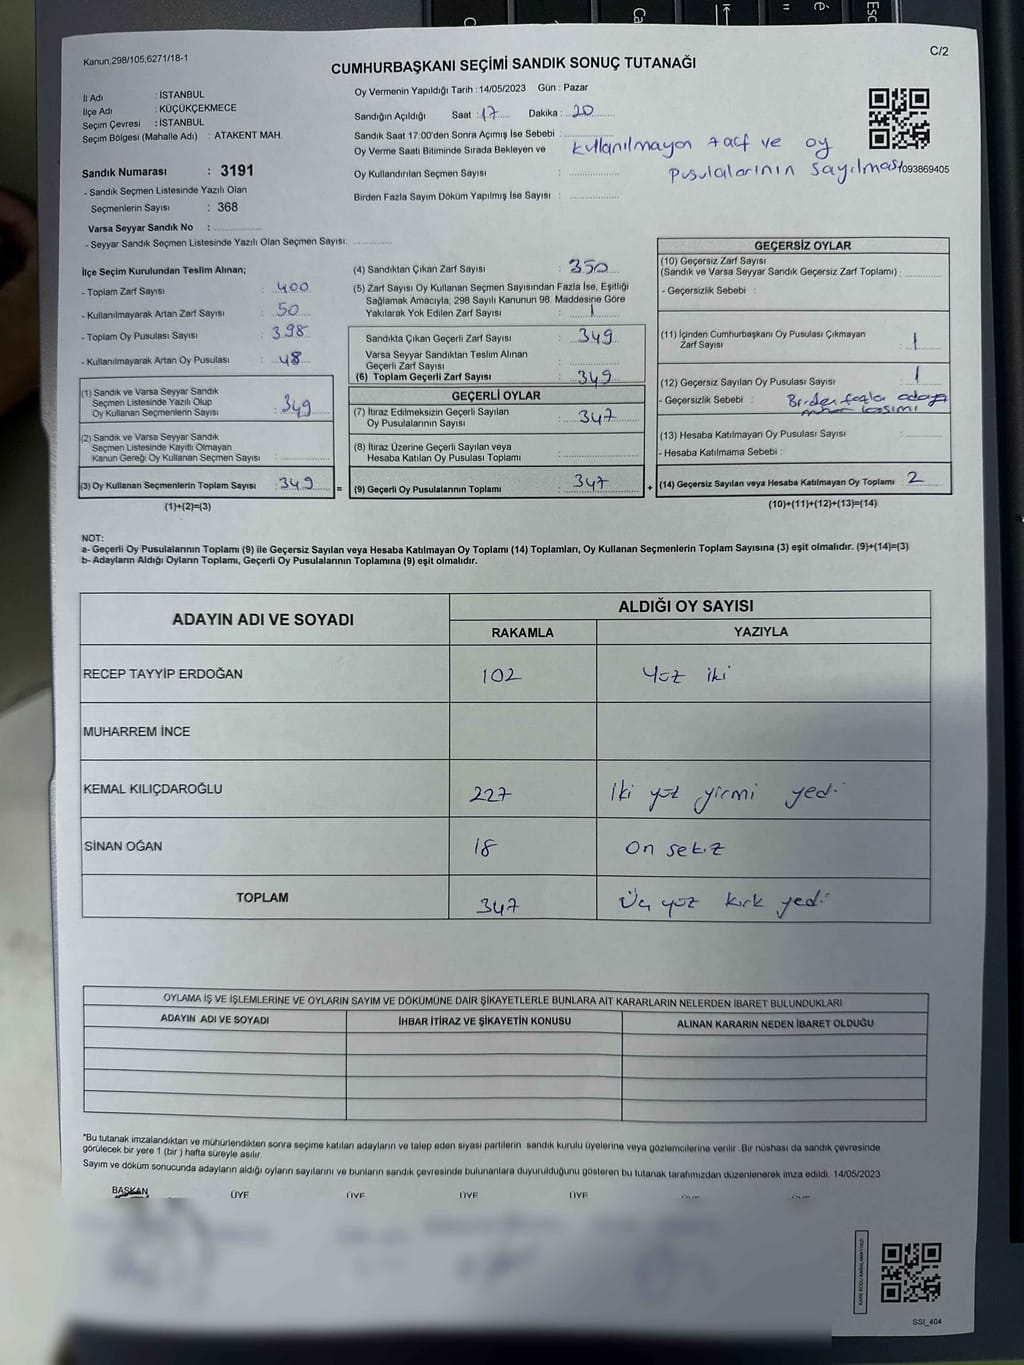 C/2
Kanun;298/105;6271/18-1
CUMHURBAŞKANI SEÇİMİ SANDIK SONUÇ TUTANAĞI
İl Adı : İSTANBUL
İlçe Adı : KÜÇÜKÇEKMECE
Seçim Çevresi : İSTANBUL
Seçim Bölgesi (Mahalle Adı) : ATAKENT MAH.
Sandık Numarası : 3191
- Sandık Seçmen Listesinde Yazılı Olan
Seçmenlerin Sayısı : 368
Varsa Seyyar Sandık No :
- Seyyar Sandık Seçmen Listesinde Yazılı Olan Seçmen Sayısı:
Oy Vermenin Yapıldığı Tarih : 14/05/2023 Gün : Pazar
Sandığın Açıldığı Saat : 17 Dakika : 20
Sandık Saat 17:00'den Sonra Açımış İse Sebebi : kullanılmayan zarf ve oy
pusulalarının sayılması
Oy Verme Saati Bitiminde Sırada Bekleyen ve
Oy Kullandırılan Seçmen Sayısı :
Birden Fazla Sayım Döküm Yapılmış İse Sayısı :
1093869405
İlçe Seçim Kurulundan Teslim Alınan;
- Toplam Zarf Sayısı : 400
- Kullanılmayarak Artan Zarf Sayısı : 50
- Toplam Oy Pusulası Sayısı : 398
- Kullanılmayarak Artan Oy Pusulası : 48
(1) Sandık ve Varsa Seyyar Sandık
Seçmen Listesinde Yazılı Olup
Oy Kullanan Seçmenlerin Sayısı : 349
(2) Sandık ve Varsa Seyyar Sandık
Seçmen Listesinde Kayıtlı Olmayan
Kanun Gereği Oy Kullanan Seçmen Sayısı :
(3) Oy Kullanan Seçmenlerin Toplam Sayısı : 349
(1)+(2)=(3)
(4) Sandıktan Çıkan Zarf Sayısı : 350
(5) Zarf Sayısı Oy Kullanan Seçmen Sayısından Fazla İse, Eşitliği
Sağlamak Amacıyla, 298 Sayılı Kanunun 98. Maddesine Göre
Yakılarak Yok Edilen Zarf Sayısı : 1
Sandıkta Çıkan Geçerli Zarf Sayısı : 349
Varsa Seyyar Sandıktan Teslim Alınan
Geçerli Zarf Sayısı :
(6) Toplam Geçerli Zarf Sayısı : 349
GEÇERLİ OYLAR
(7) İtiraz Edilmeksizin Geçerli Sayılan
Oy Pusulalarının Sayısı : 347
(8) İtiraz Üzerine Geçerli Sayılan veya
Hesaba Katılan Oy Pusulası Toplamı :
= (9) Geçerli Oy Pusulalarının Toplamı : 347 +
GEÇERSİZ OYLAR
(10) Geçersiz Zarf Sayısı
(Sandık ve Varsa Seyyar Sandık Geçersiz Zarf Toplamı) :
- Geçersizlik Sebebi :
(11) İçinden Cumhurbaşkanı Oy Pusulası Çıkmayan
Zarf Sayısı : 1
(12) Geçersiz Sayılan Oy Pusulası Sayısı : 1
- Geçersizlik Sebebi : Birden fazla adaya
mühür basımı
(13) Hesaba Katılmayan Oy Pusulası Sayısı :
- Hesaba Katılmama Sebebi :
(14) Geçersiz Sayılan veya Hesaba Katılmayan Oy Toplamı : 2
(10)+(11)+(12)+(13)=(14)
NOT:
a- Geçerli Oy Pusulalarının Toplamı (9) ile Geçersiz Sayılan veya Hesaba Katılmayan Oy Toplamı (14) Toplamları, Oy Kullanan Seçmenlerin Toplam Sayısına (3) eşit olmalıdır. (9)+(14)=(3)
b- Adayların Aldığı Oyların Toplamı, Geçerli Oy Pusulalarının Toplamına (9) eşit olmalıdır.
ADAYIN ADI VE SOYADI ALDIĞI OY SAYISI
RAKAMLA YAZIYLA
RECEP TAYYİP ERDOĞAN 102 Yüz iki
MUHARREM İNCE
KEMAL KILIÇDAROĞLU 227 İki yüz yirmi yedi
SİNAN OĞAN 18 On sekiz
TOPLAM 347 Üç yüz kırk yedi
OYLAMA İŞ VE İŞLEMLERİNE VE OYLARIN SAYIM VE DÖKÜMÜNE DAİR ŞİKAYETLERLE BUNLARA AİT KARARLARIN NELERDEN İBARET BULUNDUKLARI
ADAYIN ADI VE SOYADI İHBAR İTİRAZ VE ŞİKAYETİN KONUSU ALINAN KARARIN NEDEN İBARET OLDUĞU
*Bu tutanak imzalandıktan ve mühürlendikten sonra seçime katılan adayların ve talep eden siyasi partilerin sandık kurulu üyelerine veya gözlemcilerine verilir. Bir nüshası da sandık çevresinde
görülecek bir yere 1 (bir ) hafta süreyle asılır.
Sayım ve döküm sonucunda adayların aldığı oyların sayılarını ve bunların sandık çevresinde bulunanlara duyurulduğunu gösteren bu tutanak tarafımızdan düzenlenerek imza edildi. 14/05/2023
BAŞKAN ÜYE ÜYE ÜYE ÜYE
SSI_404